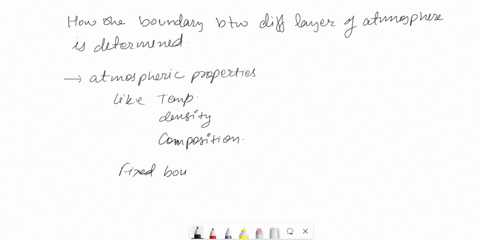 How the boundary btw diff layer of atmosphere
is determined.
→ atmospheric properties
Like Temp.
density
Composition.
Fixed bou